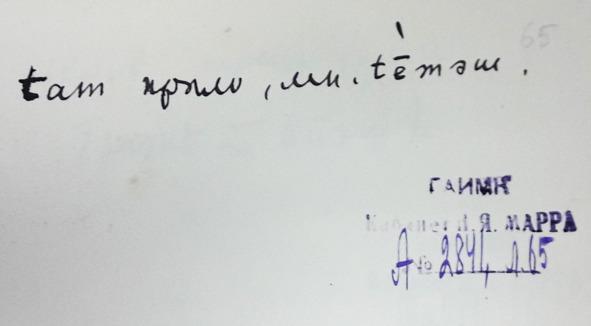 65
tат крыло, мн. tḗтэш.
ГАИМК
Кабинет Н. Я. МАРРА
А № 2841, л. 65